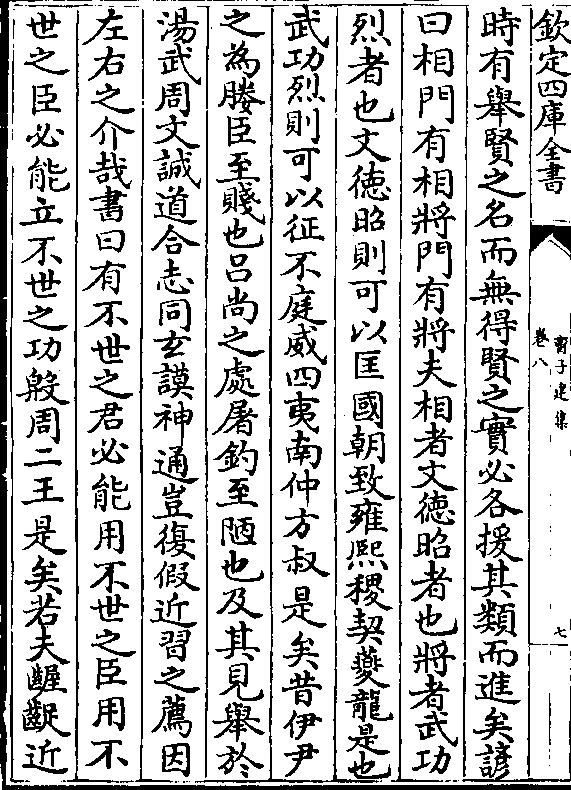 欽定四庫全書
曹子建集
卷八
七
時有舉賢之名而無得賢之實必各援其類而進矣諺
曰相門有相將門有將夫相者文德昭者也將者武功
烈者也文德昭則可以匡國朝致雍熙稷契夔龍是也
武功烈則可以征不庭威四夷南仲方叔是矣昔伊尹
之為媵臣至賤也呂尚之處屠釣至陋也及其見舉於
湯武周文誠道合志同玄謨神通豈復假近習之薦因
左右之介哉書曰有不世之君必能用不世之臣用不
世之臣必能立不世之功殷周二王是矣若夫齷齪近